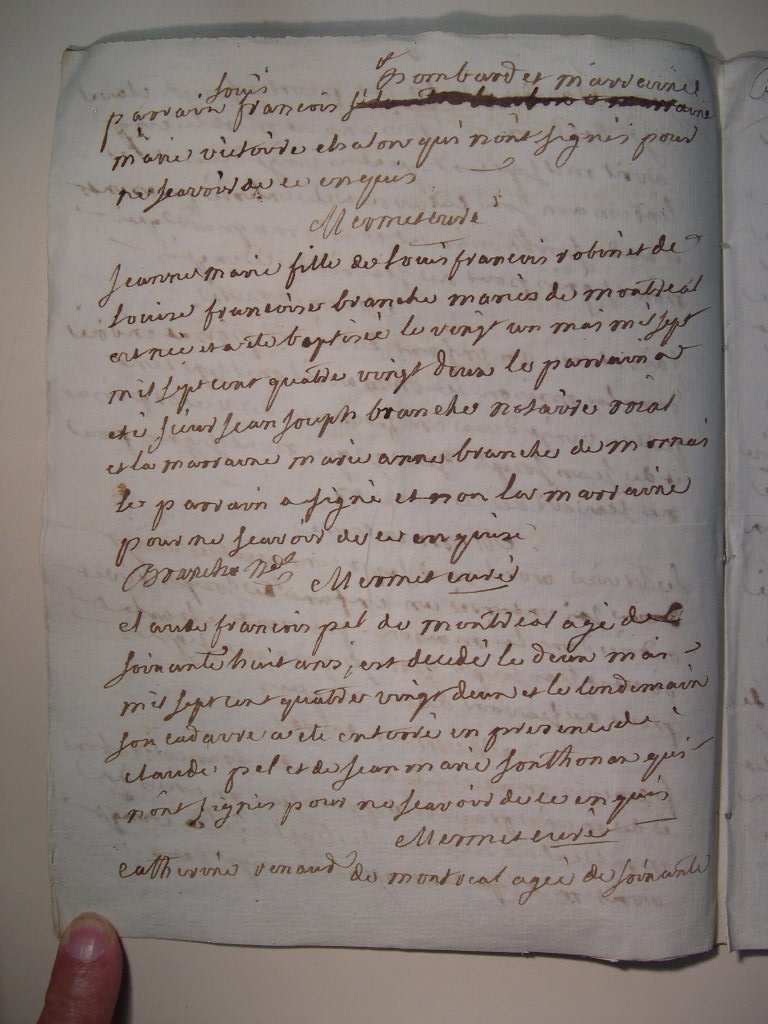 Bombard et marraine
parrain louis francois
marie victoire chalon qui n'ônt signés pour
ne scavoir de ce enquis
Mermet curé
jeanne marie fille de Louis francois robin et de
Louise francoise branche mariés de montreal
est née et a été baptisée le vingt un mai mil sept
mil sept cent quatre vingt deux le parrain a
eté sieur jean joseph branche notaire roial
et la marraine marie anne branche de mornai
le parrain a signé et non la marraine
pour ne scavoir de ce enquise
Branche Not Mermet curé
claude francois pel de montréal agé de
soixante huit ans, est decedé le deux mai
mil sept cent quatre vingt deux et le lendemain
son cadavre a eté enterré en presence de
claude pel et de jean marie sonthonax qui
n'ônt signés pour ne scavoir de ce enquis
Mermet curé
catherine renaud de montreal agée de soixante